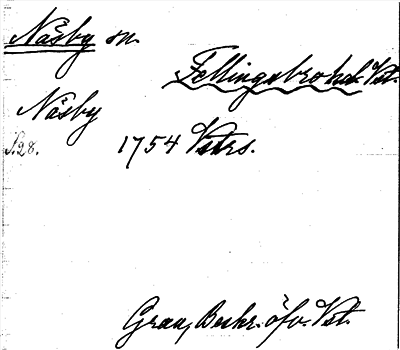 Näsby sn.
Fellingsbro hd. Vst.
Näsby
S. 28.
1754 Vstrs.
Grau, Beskr. öfv. Vst.